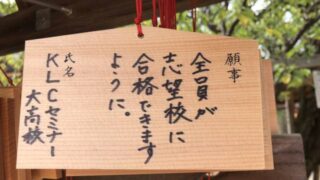 願事
全員が
志望校に
合格できます
ように。
氏名
KLCセミナー
大高校